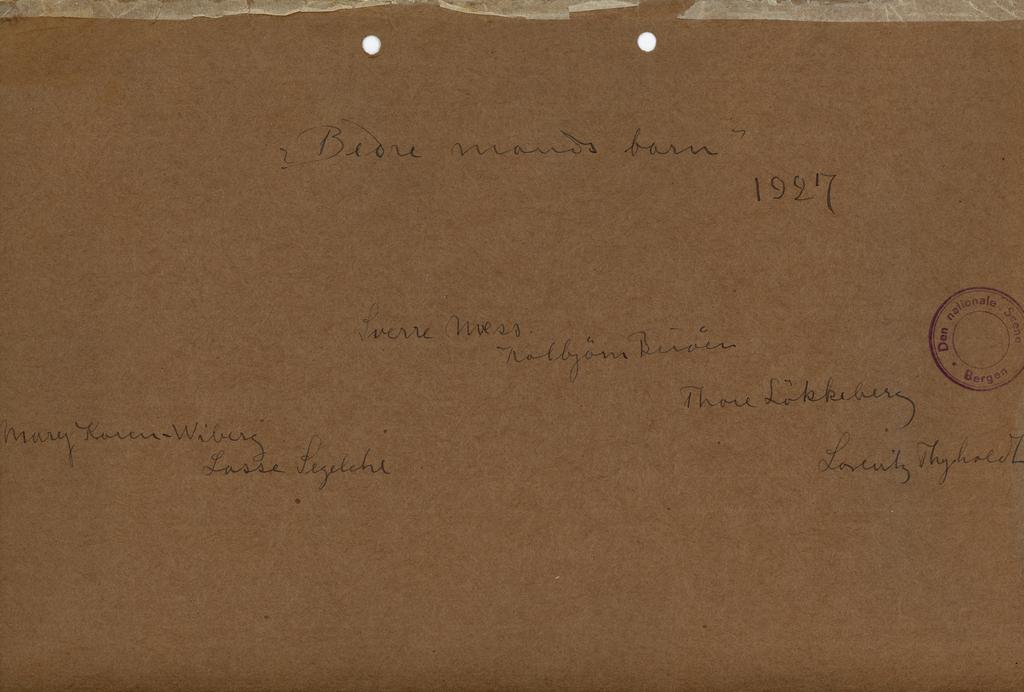 „Bedre mands barn"
1927
Sverre Næss.
Kolbjörn Buröen
Thore Lökkeberg
Mary Koren-Wiberg
Lasse Segelcke
Lorentz Thyholdt
Den nationale Scene
Bergen